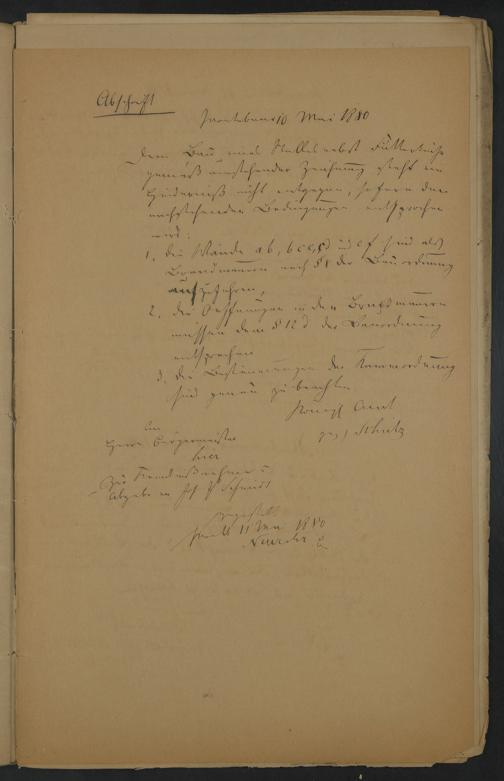 Abschrift
Montabaur 10 Mai 1880
Dem Bau eines Stalles nebst Futtertenne
gemäß anstehender Zeichnung steht ein
Hinderniß nicht entgegen, sofern den
nachstehenden Bedingungen entsprochen
wird:
1, die Wände ab, bc, cd und ef sind als
Brandmauern nach § der Bauordnung
aufzuführen,
2. die Oeffnungen in den Brandmauern
müssen dem § 12 d der Bauordnung
entsprechen
3. die Bestimmungen der Bauordnung
sind genau zu beachten
Königl Amt
gez) Schutz
An
Herrn Bürgermeister
hier
Zur Kenntnißnahme u
Abgabe an Schmidt
zugestellt
11 Mai 1880